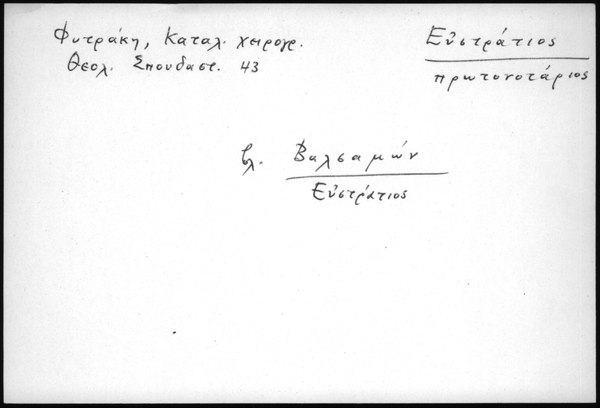 Φυτράκη, Καταλ. χειρογρ.
Θεολ. Σπουδαστ. 43
Εὐστράτιος
πρωτονοτάριος
βλ. Βαλσαμών
Εὐστράτιος